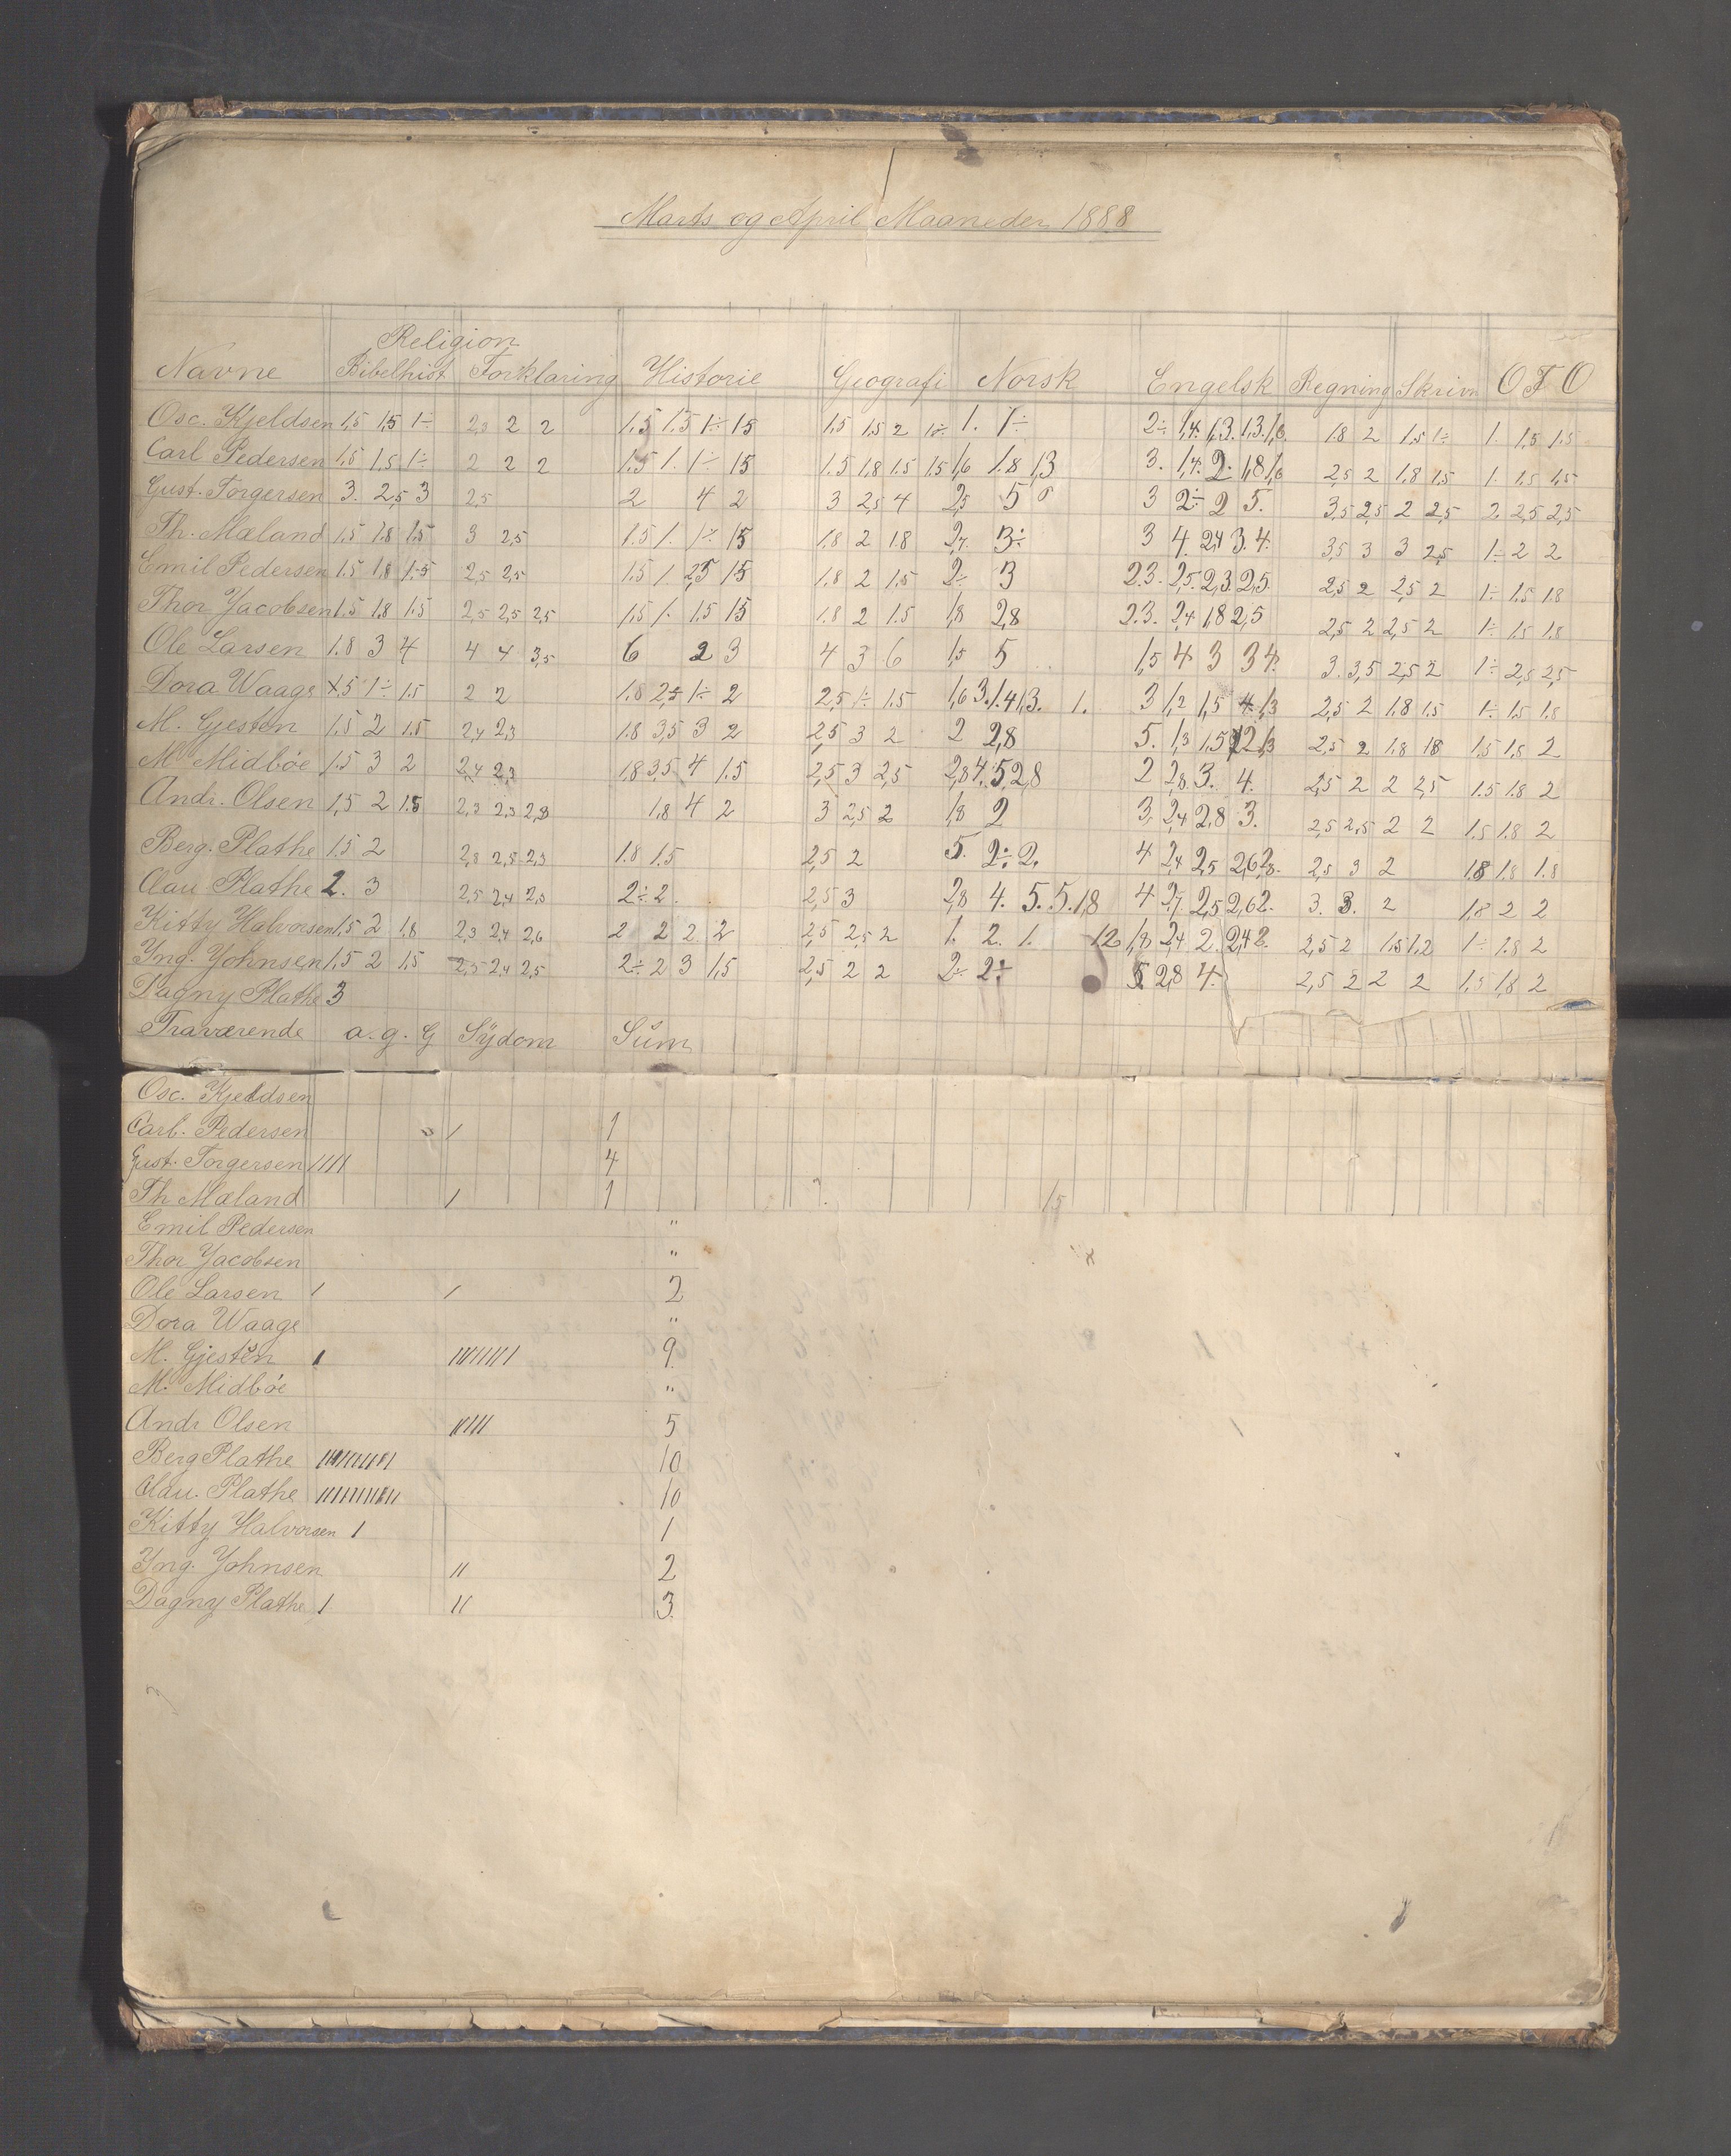 Marts og April Maaneder 1888
Religion
Navne Bibelhist Forklaring Historie Geografi Norsk Engelsk Regning Skrivn O F O
Osc. Kjeldsen 1,5 1,5 1÷ 2,3 2 2 1.5 1.5 1÷ 1,5 1.5 1,5 2 1÷ 1. 1÷ 2÷ 1,4. 1,3. 1,3. 1,6. 1.8 2 1,5 1÷ 1. 1,5 1,5
Carl Pedersen 1,5 1,5 1÷ 2 2 2 1.5 1. 1÷ 1,5 1.5 1,8 1.5 1,5 1,6 1.8 1,3 3. 1,4. 2. 1,8 1,6 2,5 2 1.8 1,5 1. 1,5 1,5
Gust. Torgersen 3. 2,5 3 2,5 2 4 2 3 2,5 4 2,5 5 3 2÷ 2 5. 3,5 2,5 2 2,5 2. 2,5 2,5
Th. Mæland 1.5 1.8 1.5 3 2,5 1.5 1. 1÷ 1,5 1.8 2 1.8 2,7. 3÷ 3 4. 2,4 3. 4. 3,5 3 3 2,5 1÷ 2 2
Emil Pedersen 1.5 1,8 1,5 2,5 2,5 1.5 1 2,5 1,5 1.8 2 1,5 2÷ 3 2.3. 2,5. 2,3. 2,5. 2,5 2 2,5 2 1÷ 1.5 1.8
Thor Jacobsen 1.5 1,8 1.5 2,5 2,5 2,5 1,5 1. 1.5 1,5 1.8 2 1.5 1,8 2,8 2.3. 2,4 1,8 2,5 2,5 2 2,5 2 1÷ 1.5 1.8
Ole Larsen 1.8 3 4 4 4 3,5 6 2 3 4 3 6 1,5 5 1,5 4 3 3 4. 3. 3,5 2,5 2 1÷ 2,5 2,5
Dora Waage 1.5 1÷ 1.5 2 2 1.8 2,5 1÷ 2 2,5 1÷ 1.5 1,6 3. 1.4 1,3. 1. 3 1,2 1,5 4. 1,3 2,5 2 1.8 1.5 1÷ 1.5 1.8
M. Gjesten 1,5 2 1.5 2,4 2,3 1.8 3,5 3 2 2,5 3 2 2 2,8 5. 1,3 1,5 2 1,3 2,5 2 1.8 1,8 1.5 1.8 2
M. Midbøe 1.5 3 2 2,4 2,3 1.8 3,5 4 1.5 2,5 3 2,5 2,8 4. 5. 2,8 2 2,8 3. 4. 2,5 2 2 2,5 1.5 1.8 2
Andr. Olsen 1,5 2 1.5 2,3 2,3 2,3 1,8 4 2 3 2,5 2 1,8 2 3. 2,4 2,8 3. 2,5 2,5 2 2 1.5 1.8 2
Berg. Plathe 1.5 2 2,8 2,5 2,3 1.8 1.5 2,5 2 5. 2÷ 2. 4 2,4 2,5 2,6 2,8. 2,5 3 2 1.8 1.8 1.8
Clau Plathe 2. 3 2,5 2,4 2,3 2÷ 2. 2,5 3 2,8 4. 5. 5. 1,8 4. 2,7. 2,5 2,6 2. 3. 3. 2 1,8 2 2
Kitty Halvorsen 1,5 2 1,8 2,3 2,4 2,6 2 2 2 2 2,5 2,5 2 1. 2. 1. 1,2 1,8 2,4 2. 2,4 2. 2,5 2 1.5 1,2 1÷ 1.8 2
Yng. Yohnsen 1,5 2 1,5 2,5 2,4 2,5 2÷ 2 3 1,5 2,5 2 2 2÷ 2÷ 5. 2,8 4. 2,5 2 2 2 1,5 1,8 2
Dagny Plathe 3
Fraværende a. g. G Sÿdom Sŭm
Osc. Kjeldsen
Carl. Pedersen / 1
Gust. Torgersen //// 4
Th Mæland / 1 1,5
Emil Pedersen "
Thor Jacobsen "
Ole Larsen / / 2
Dora Waage "
M. Gjestĕn / //////// 9
M. Midbøe "
Andr Olsen ///// 5
Berg Plathe ////////// 10
Clau. Plathe ////////// 10
Kitty Halvorsen 1 1
Yng. Yohnsen // 2
Dagny Plathe / // 3.